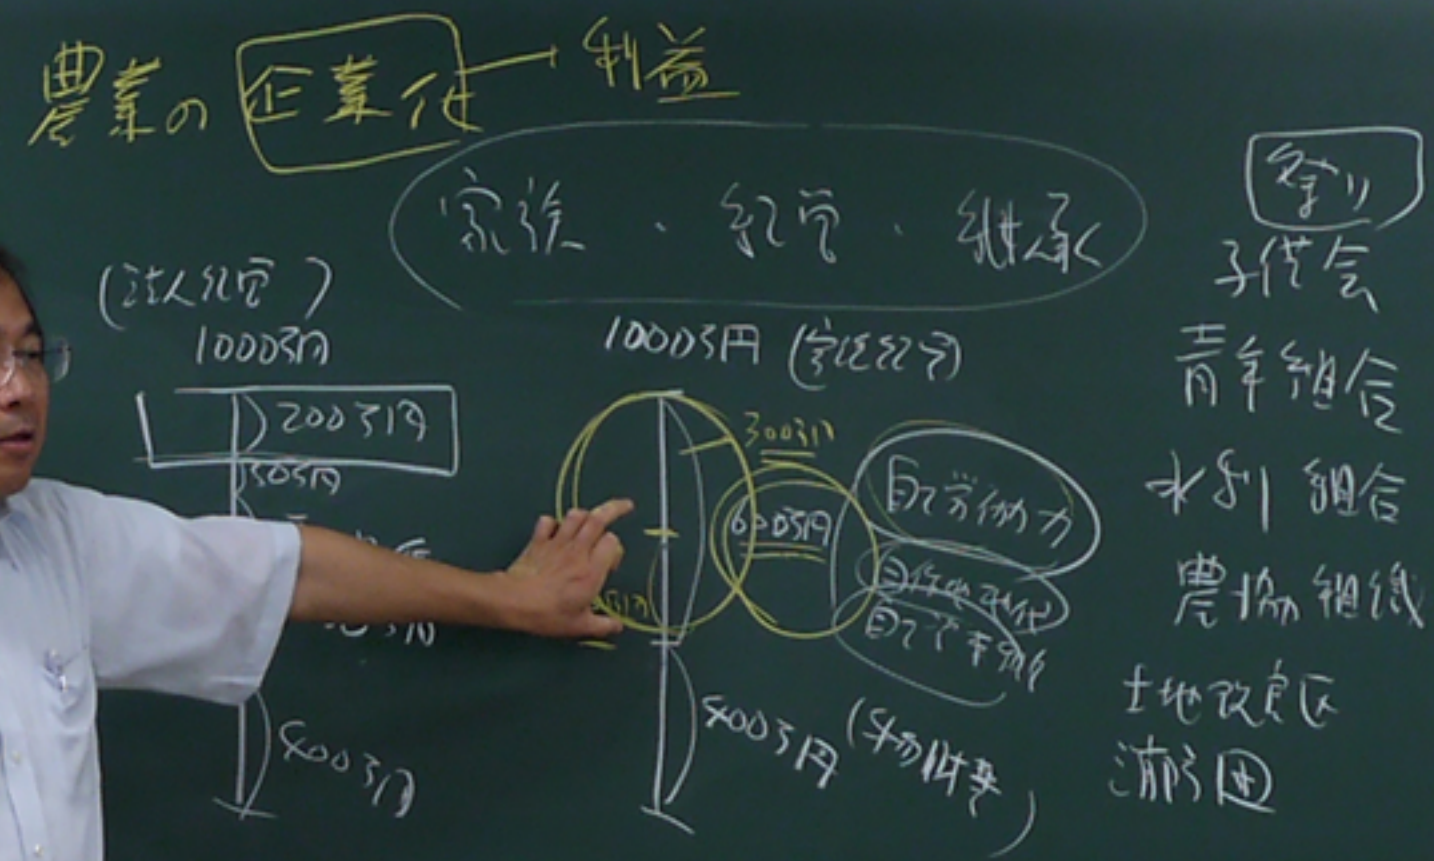 農業の 企業化 利益
家族・経営・継承
(法人経営)
1000万円
200万円
50万円
400万円
1000万円 (家族経営)
300万円
600万円
自己労働力
自作地地代
自己資本
400万円 (物財費)
祭り
子供会
青年組合
水利組合
農協組織
土地改良区
消防団